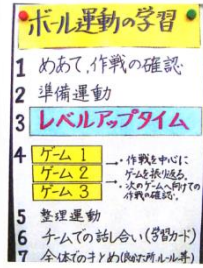 ボール運動の学習
1 めあて、作戦の確認
2 準備運動
3 レベルアップタイム
4 ゲーム1
ゲーム2
ゲーム3
→・作戦を中心に
ゲームを振り返る。
・次のゲームへ向けての
作戦の確認。
5 整理運動
6 チームでの話し合い(学習カード)
7 全体でのまとめ